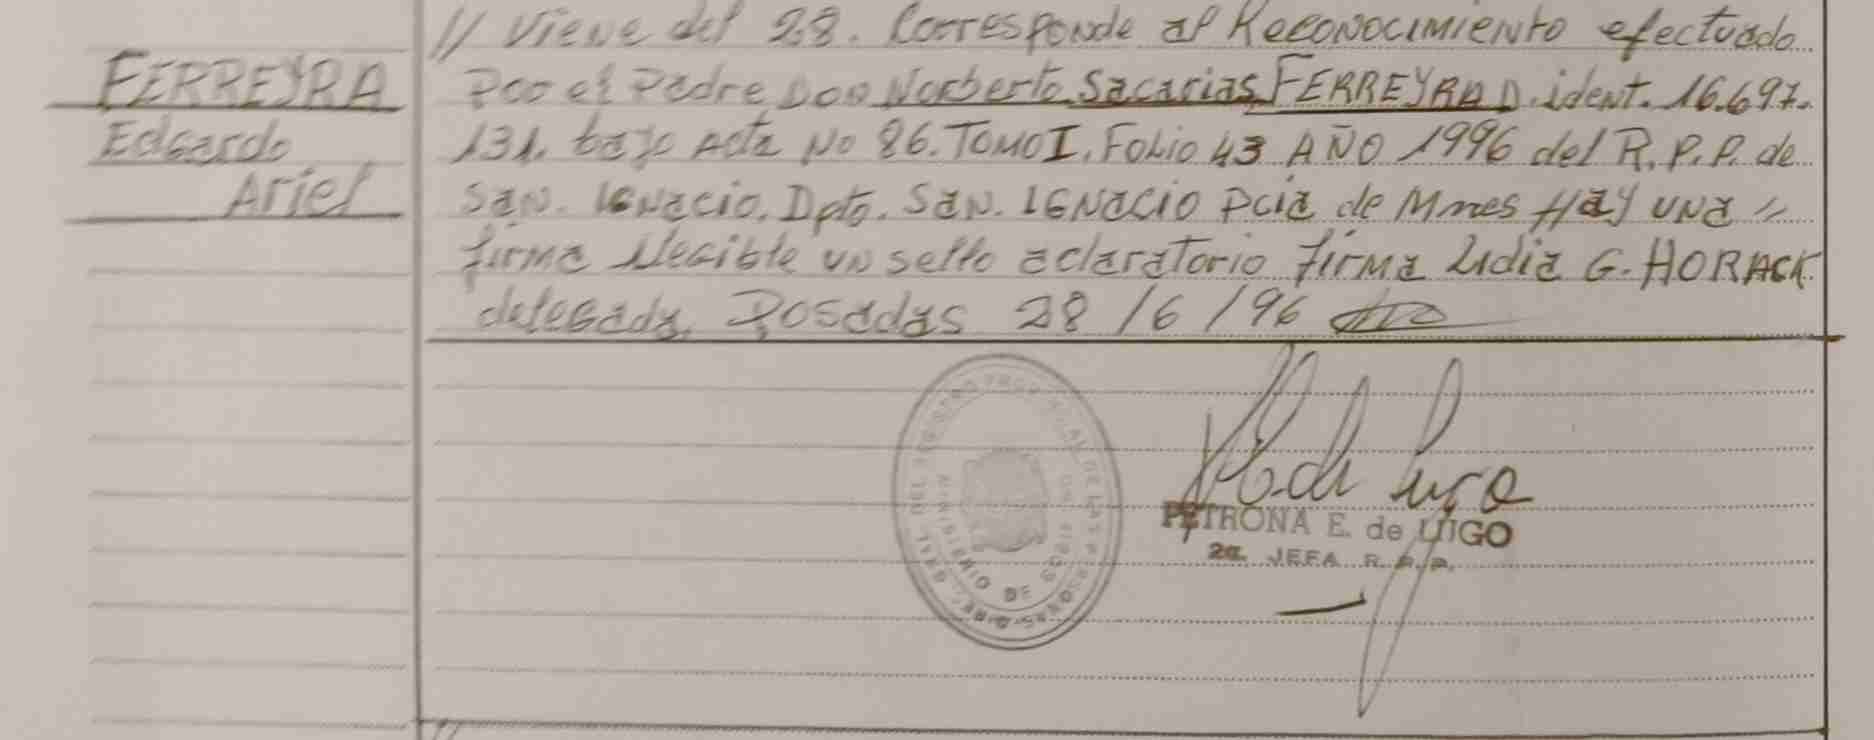 FERREYRA
Edgardo
Ariel
// Viene del 28. Corresponde al Reconocimiento efectuado
Por el Padre Don Norberto Sacarias FERREYRA D. ident. 16.697.
131. bajo Acta No 86. TOMO I. Folio 43 AÑO 1996 del R.P.P. de
San. Ignacio. Dpto. San. IGNACIO Pcia de Mnes Hay una //
firma Ilegible un sello aclaratorio firma Lidia G. HORACK
delegada. Posadas 28/6/96
PETRONA E. de LUGO
2a. JEFA R.P.P.
MINISTERIO DE